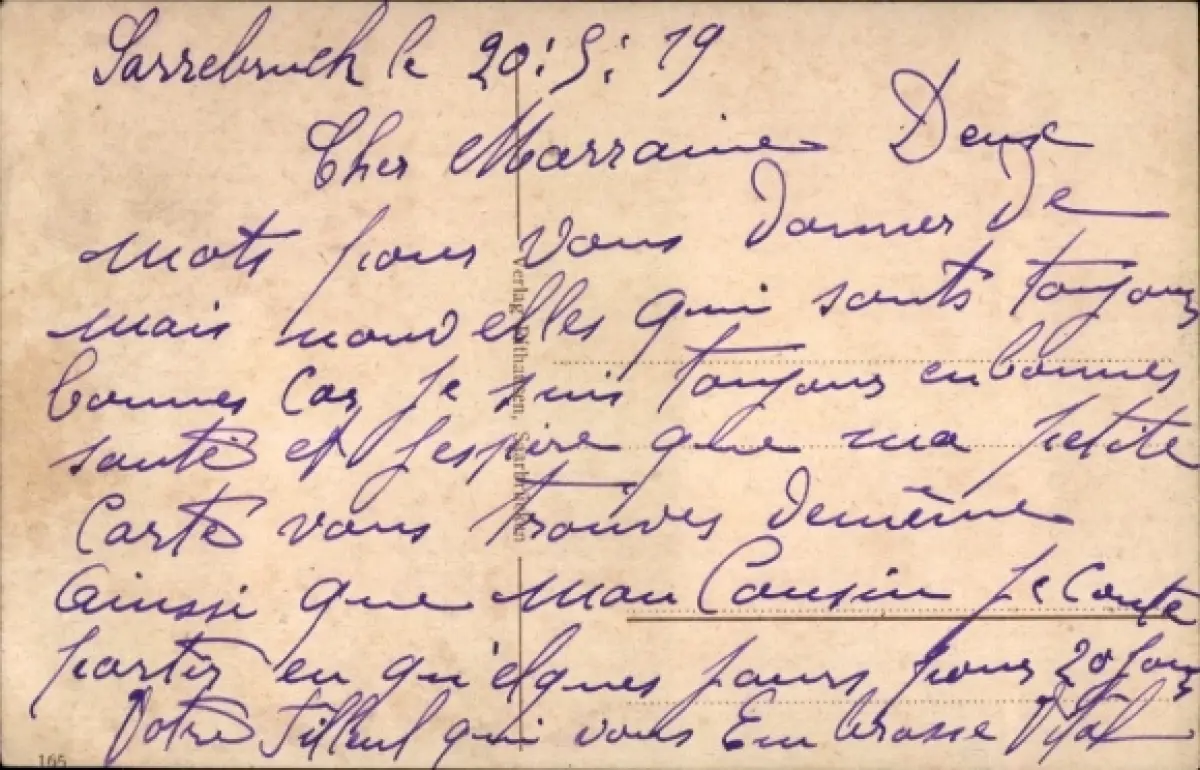 Sarrebruck le 20:5:19
Cher Marraine Deux
Mots pour vous donner de
mais nouvelles qui sonts toujours
bonnes Car je suis toujours en bonnes
santé et j'espère que ma petite
Carte vous trouves demême
Ainssi que Mon Cousin je Conte
partir en qu'elques jours pour 20 jours
Votre filleul qui vous Embrasse
Verlag Saarbrücken
165